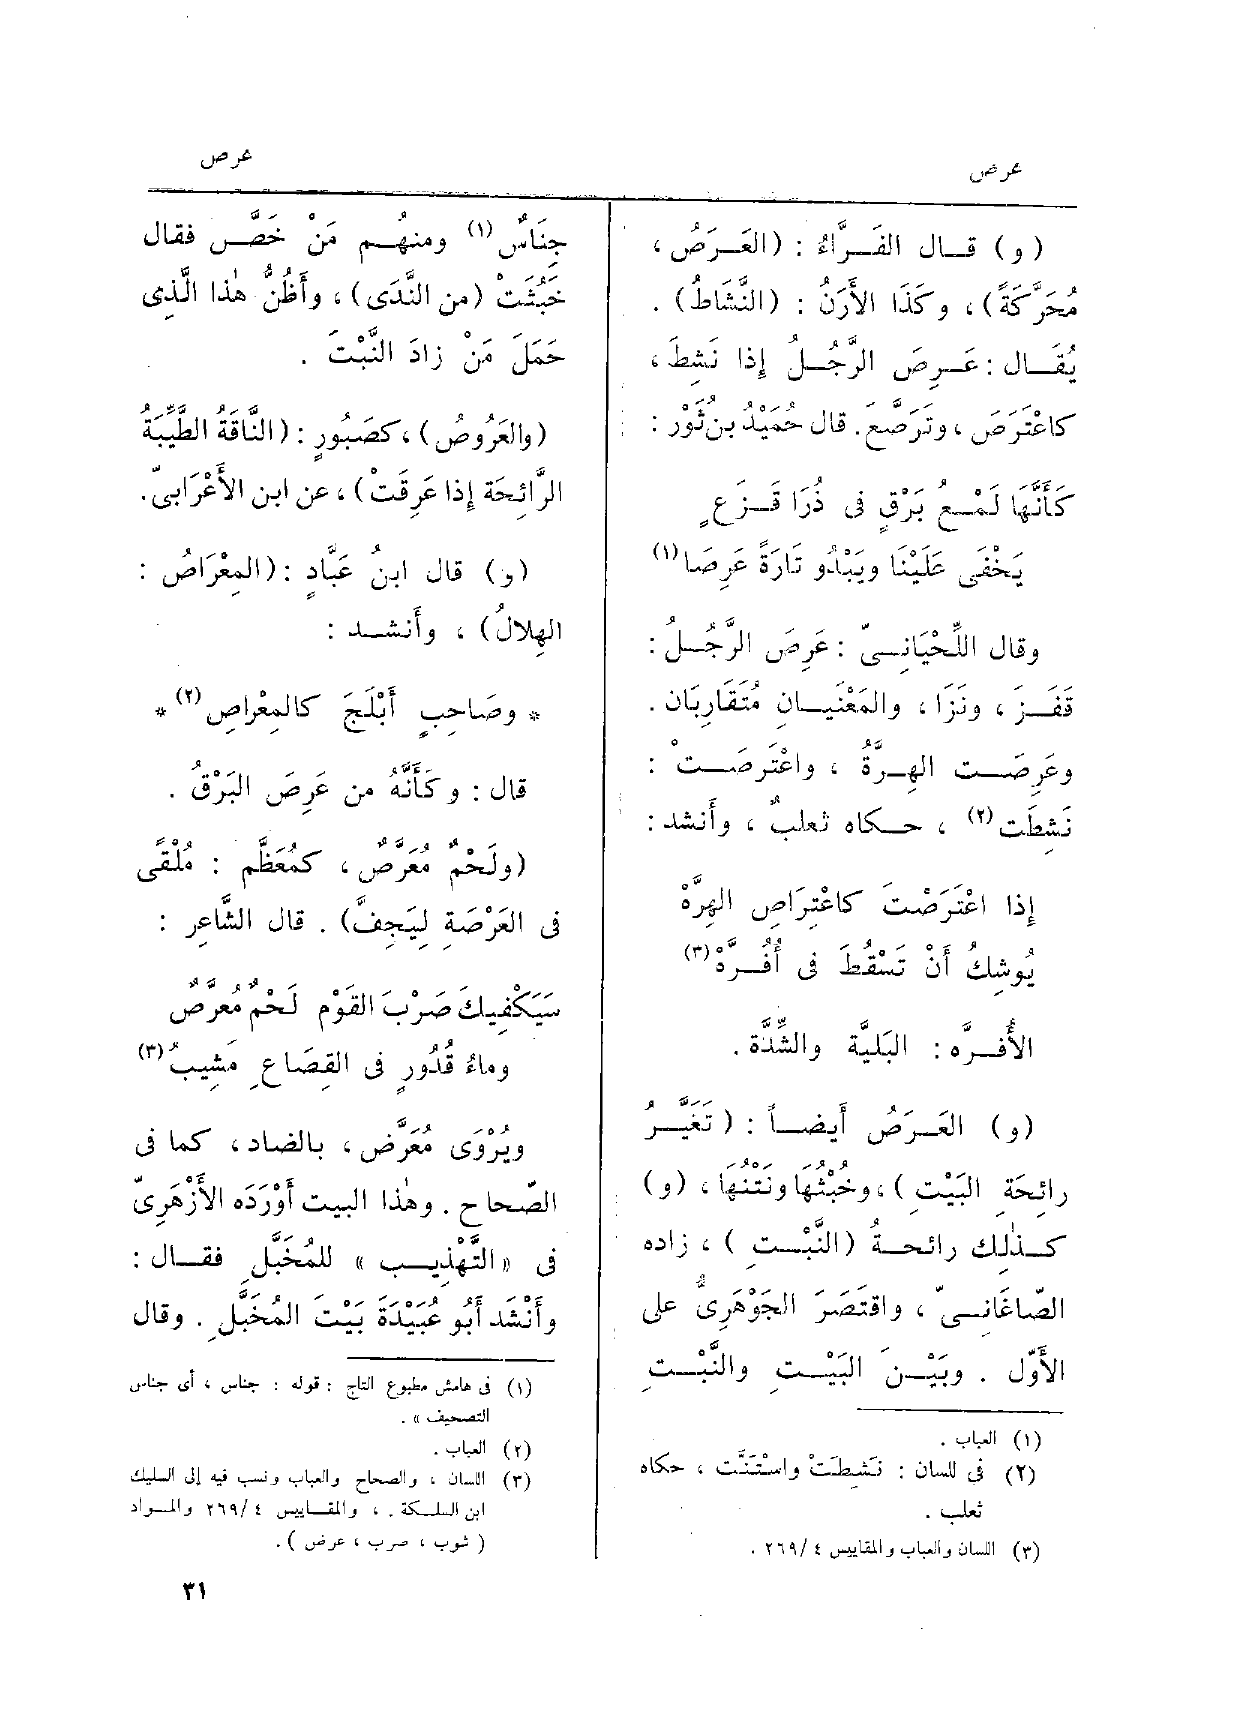 عرض
عرص
(و) قـال الفَـرَّاءُ : (العَـرَصُ ،
مُحَرَّكَةً)، وكَذَا الأَرَنُ : (النَّشَاطُ) .
يُقَـال : عَـرِصَ الرَّجُـلُ إِذا نَشِطَ ،
كاعْتَرَصَ ، وتَرَصَّعَ. قال حُمَيْدُ بن ثَوْر :
كَأَنَّهَا لَمْـعُ بَرْقٍ فى ذُرَا قَـزَعٍ
يَخْفَى عَلَيْنَا ويَبْدُو تارَةً عَرِصَا (١)
وقال اللِّحْيَانِـىّ : عَرِصَ الرَّجُـلُ :
قَفَـزَ ، ونَزَا ، والمَعْنَيـانِ مُتَقَارِبَان .
وعَرِصَـت الهِـرَّةُ ، واعْتَرَصَـتْ :
نَشِطَت (٢) ، حـكاه ثعلبٌ ، وأَنشد :
إِذا اعْتَرَصْتَ كاعْتِرَاصِ الهِرَّهْ
يُوشِكُ أَنْ تَسْقُطَ فى أُفُـرَّهْ (٣)
الأُفُـرَّه : البَلِيَّة والشِّدَّة .
(و) العَـرَصُ أَيضـاً : (تَغَيُّـرُ
رائِحَةِ البَيْتِ) ، وخُبْثُها ونَتْنُهَا ، (و)
كـذٰلِك رائحـةُ (النَّبْـتِ) ، زاده
الصّاغَانِـىّ ، واقتَصَرَ الجَوْهَرِىُّ على
الأَوّل . وبَيْـنَ البَيْـتِ والنَّبْـتِ
(١) العباب .
(٢) فى للسان : نَشِطَتْ واسْتَنَّت ، حكاه
ثعلب .
(٣) اللسان والعباب والمقاييس ٤ /٢٦٩ .
جِنَاسٌ (١) ومنهُـم مَنْ خَصَّـ فقال
خَبُثَتْ (من النَّدَى) ، وأَظُنُّ هٰذا الَّذِى
حَمَلَ مَنْ زادَ النَّبْتَ .
(والعَرُوصُ) ، كصَبُورٍ : (النَّاقَةُ الطَّيِّبَةُ
الرَّائِحَة إِذا عَرِقَتْ) ، عن ابن الأَعْرَابىّ.
(و) قال ابنُ عَبَّادٍ : (المِعْرَاصُ :
الهِلالُ) ، وأَنشـد :
* وصَاحِبٍ أَبْلَجَ كالمِعْراصِ (٢) *
قال : وكَأَنَّهُ من عَرِصَ البَرْقُ .
(ولَحْمٌ مُعَرَّصٌ ، كمُعَظَّم : مُلْقًى
فى العَرْصَةِ لِيَجِفَّ) . قال الشَّاعِر :
سَيَكْفِيكَ صَرْبَ القَوْمِ لَحْمٌ مُعَرَّصٌ
وماءُ قُدُورٍ فى القِصَاعِ مَشِيبُ (٣)
ويُرْوَى مُعَرَّض ، بالضاد ، كما فى
الصّحاح . وهٰذا البيت أَوْرَدَه الأَزْهَرِىّ
فى « التَّهْذِيـب » للمُخَبَّلِ فقـال :
وأَنْشَد أَبُو عُبَيْدَةَ بَيْتَ المُخَبَّلِ . وقال
(١) فى هامش مطبوع التاج : قوله : جناس ، أى جناس
التصحيف » .
(٢) العباب .
(٣) اللسان ، والصحاح والعباب ونسب فيه إلى السليك
ابن السلـكة . ، والمقـاييس ٤ /٢٦٩ والمـواد
( شوب ، صرب ، عرض ) .
٣١